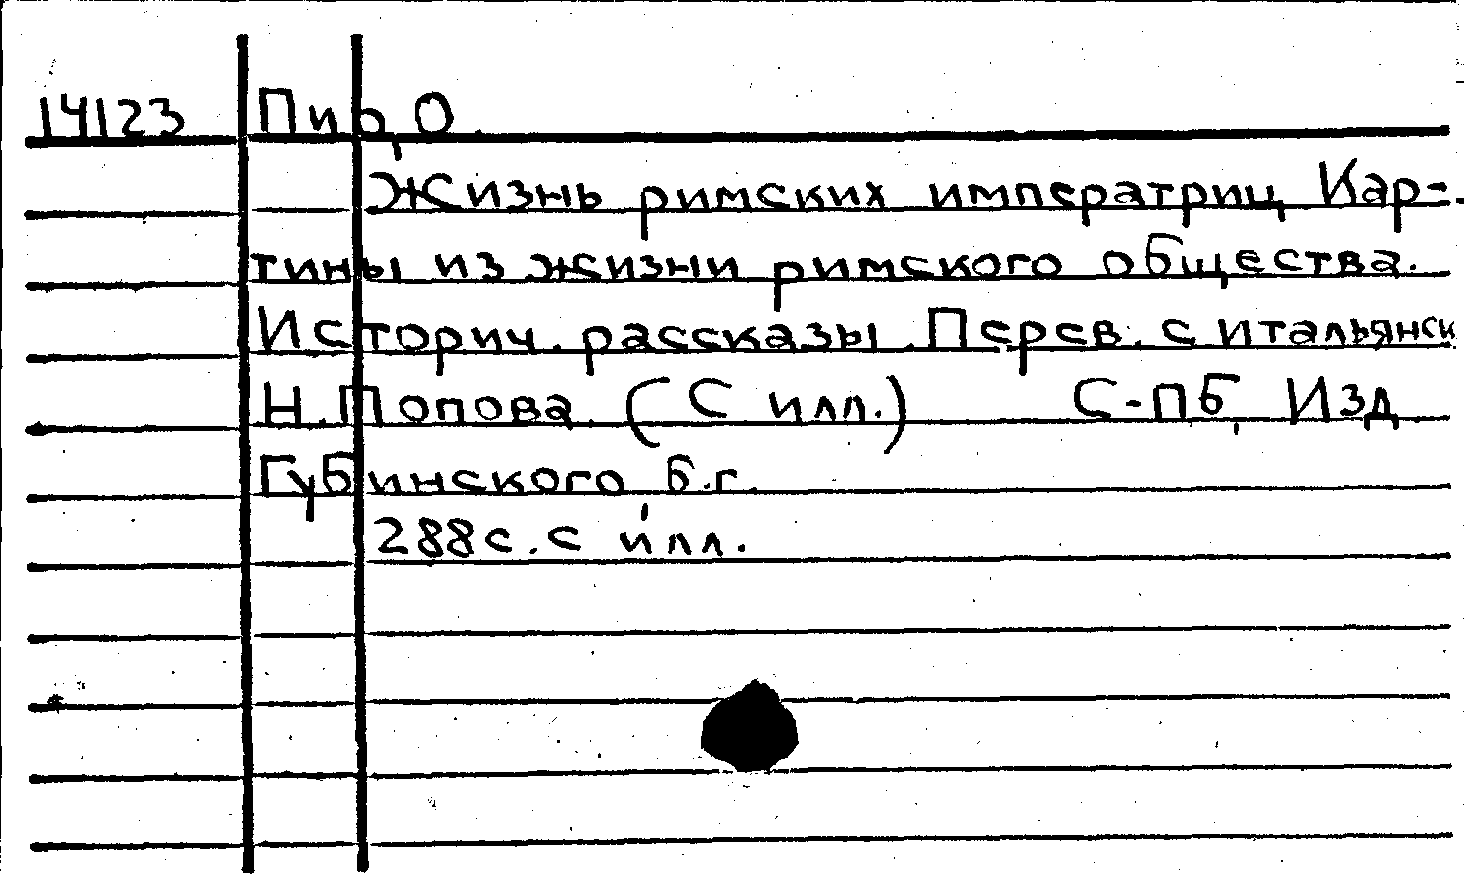 14123 Пир, О.
Жизнь римских императриц Кар-
тины из жизни римского общества.
Историч. рассказы. Перев. с итальянск
Н. Попова. (С илл.) С-ПБ, Изд
Губинского, б.г.
288с. с илл.